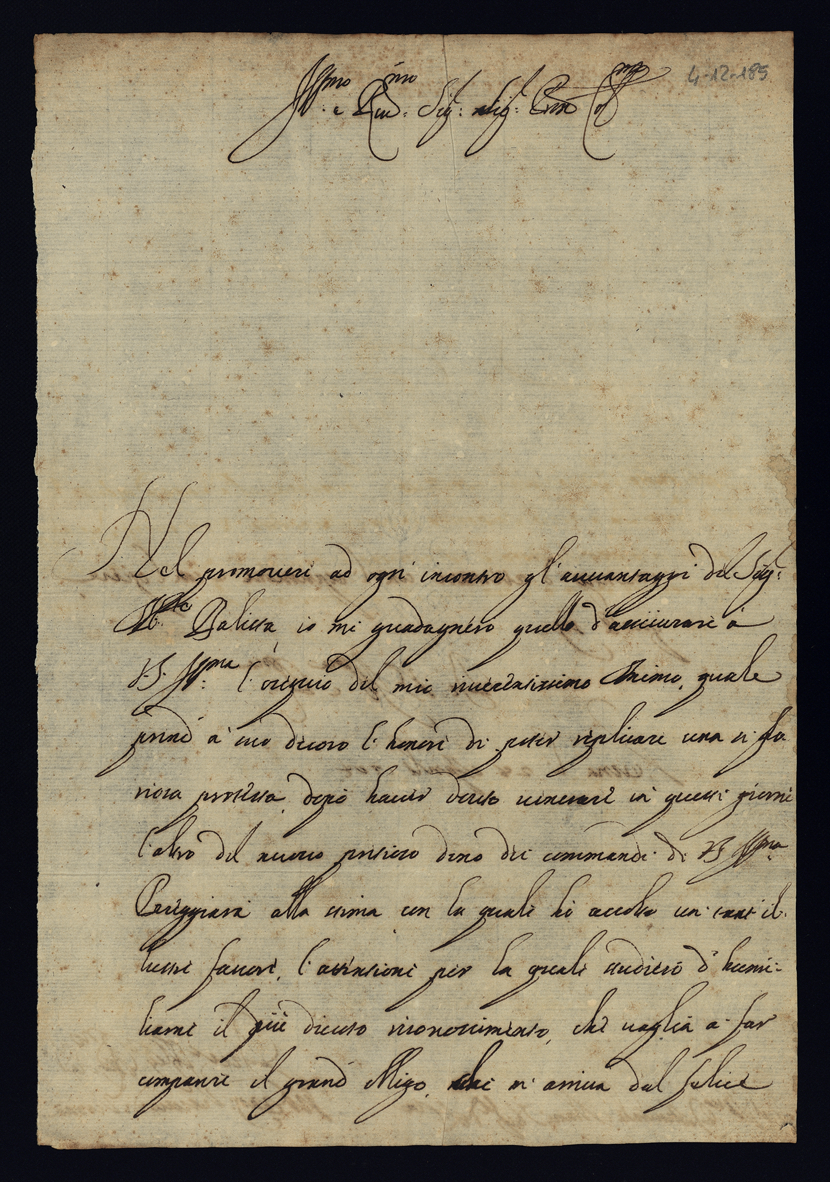 4-12-185
Ill.mo e Rev.mo Sig.r e Sig.r Pron Col.mo
Nel promovere ad ogni incontro gl'avvantaggi del Sig.r
Balista io mi guadagnerò quello d'assicurare à
V.S. Ill.ma l'ossequio del mio riverentissimo Animo, quale
prende a suo decoro l'honore di poter replicare una si glo
riosa protesta, dopo haver devuto venerare in questi giorni
l'altro del nuovo prezioso dono dei commandi di V.S. Ill.ma
Pareggiarà alla stima con la quale hò accolto un tant'il-
lustre favore, l'attentione per la quale studierò d'humi-
liarne il più divoto riconoscimento, che vaglia a far
comparire il grand'obligo, che m'arriva dal felice